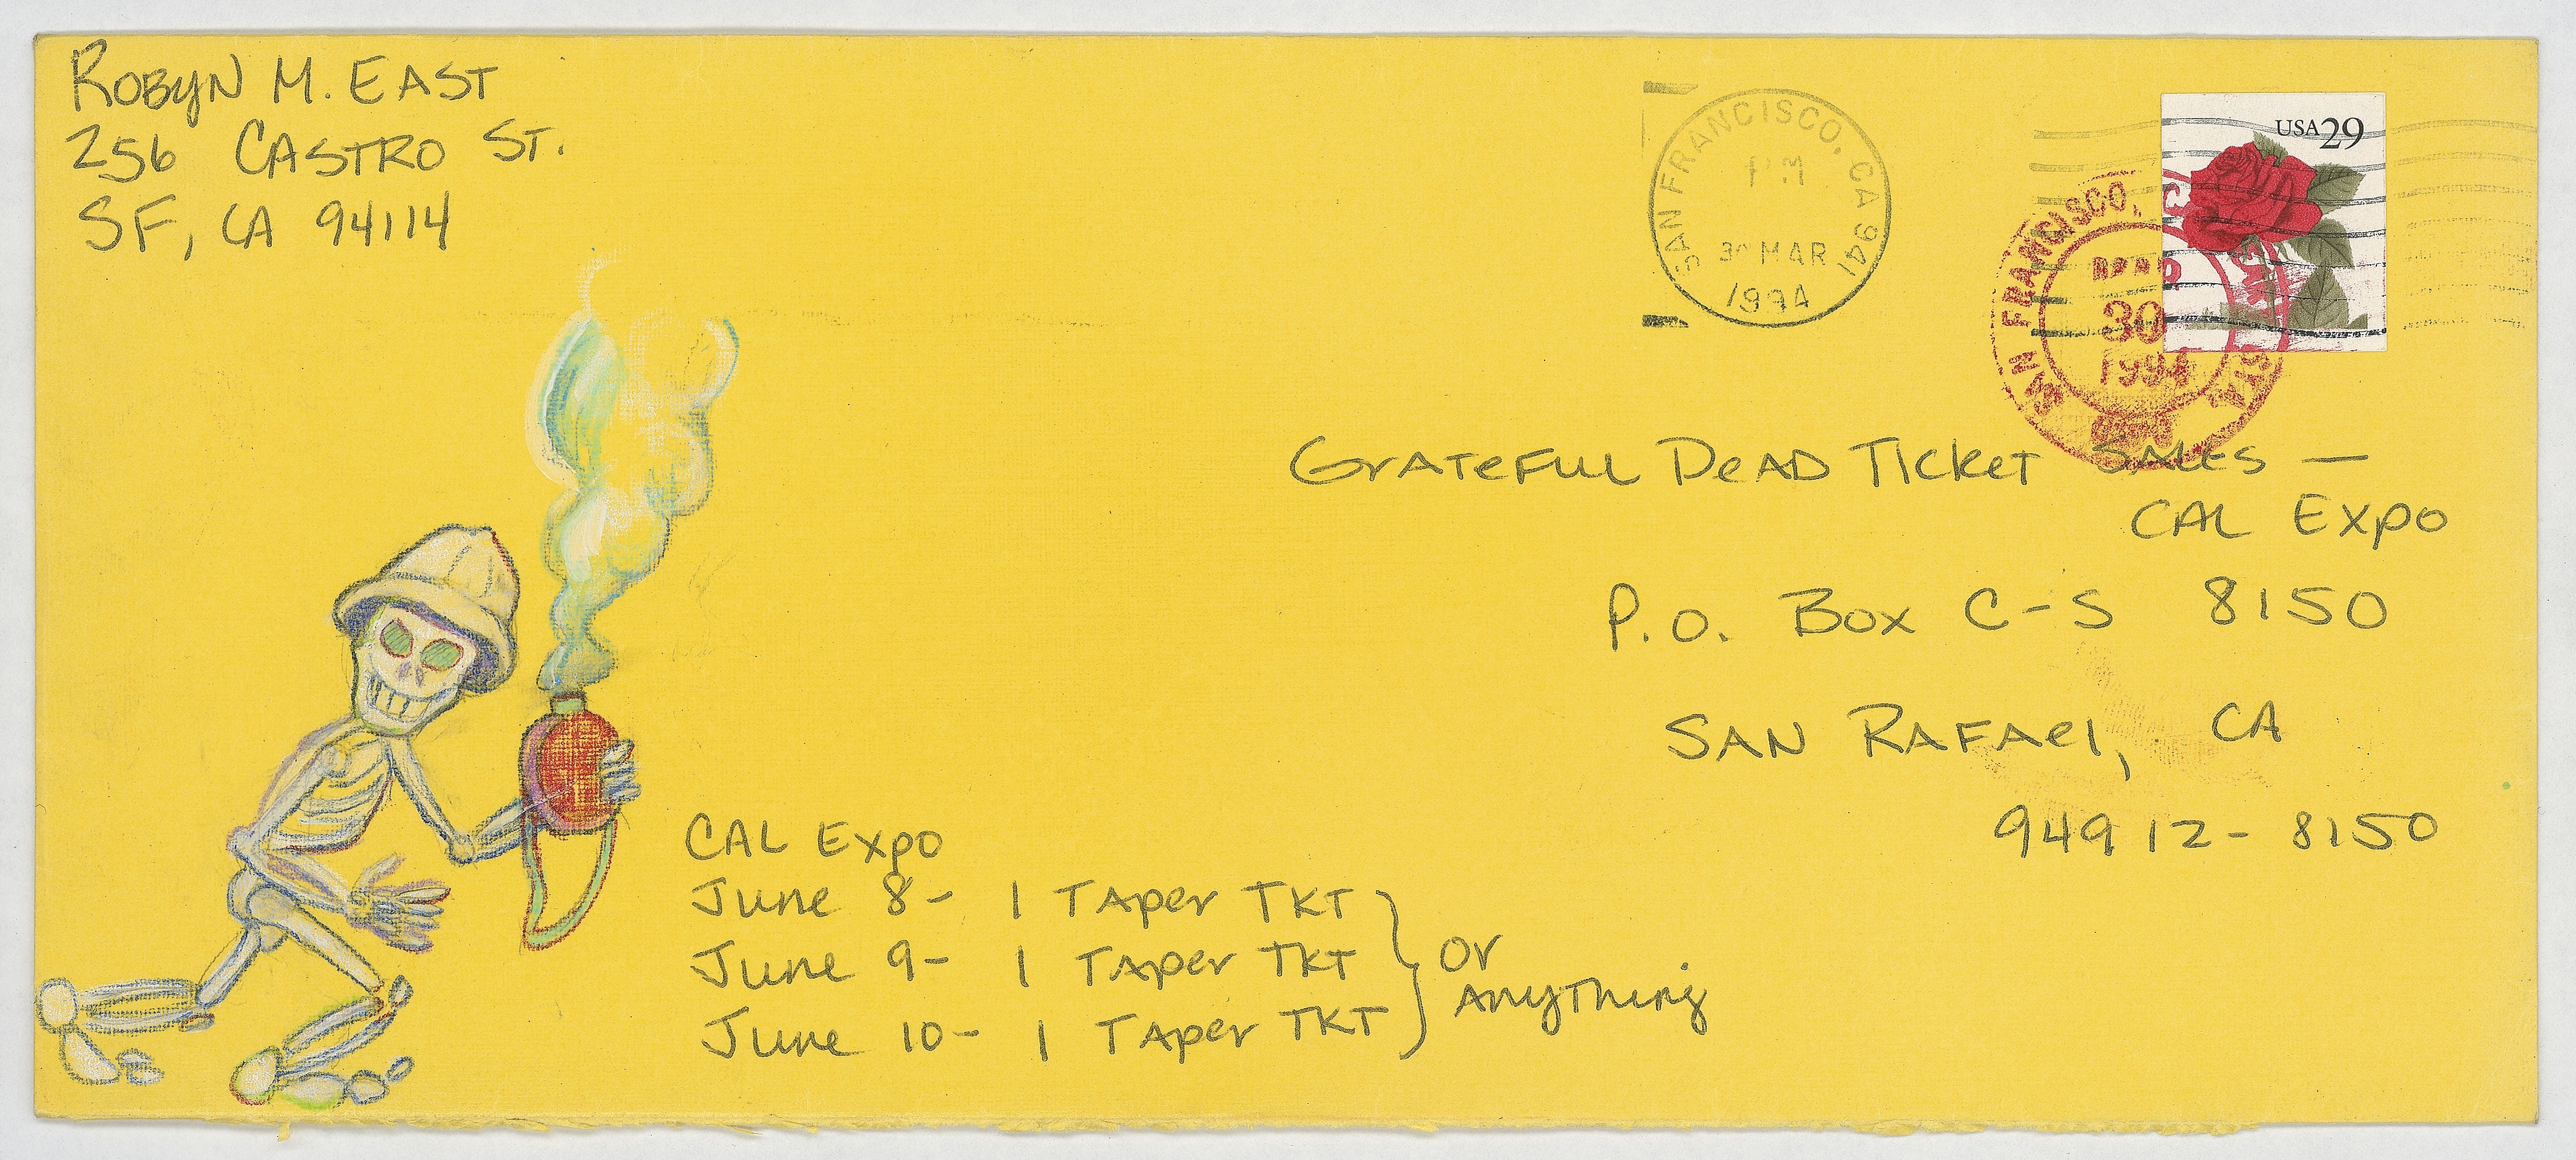 Robyn M. East
256 Castro St.
SF, CA 94114
SAN FRANCISCO, CA 941
PM
30 MAR
1994
USA 29
SAN FRANCISCO,
MAR
30
1994
Grateful Dead Ticket Sales —
Cal Expo
P.O. Box C-S 8150
San Rafael, CA
94912-8150
Cal Expo
June 8- 1 Taper TKT
June 9- 1 Taper TKT
June 10- 1 Taper TKT
or
Anything